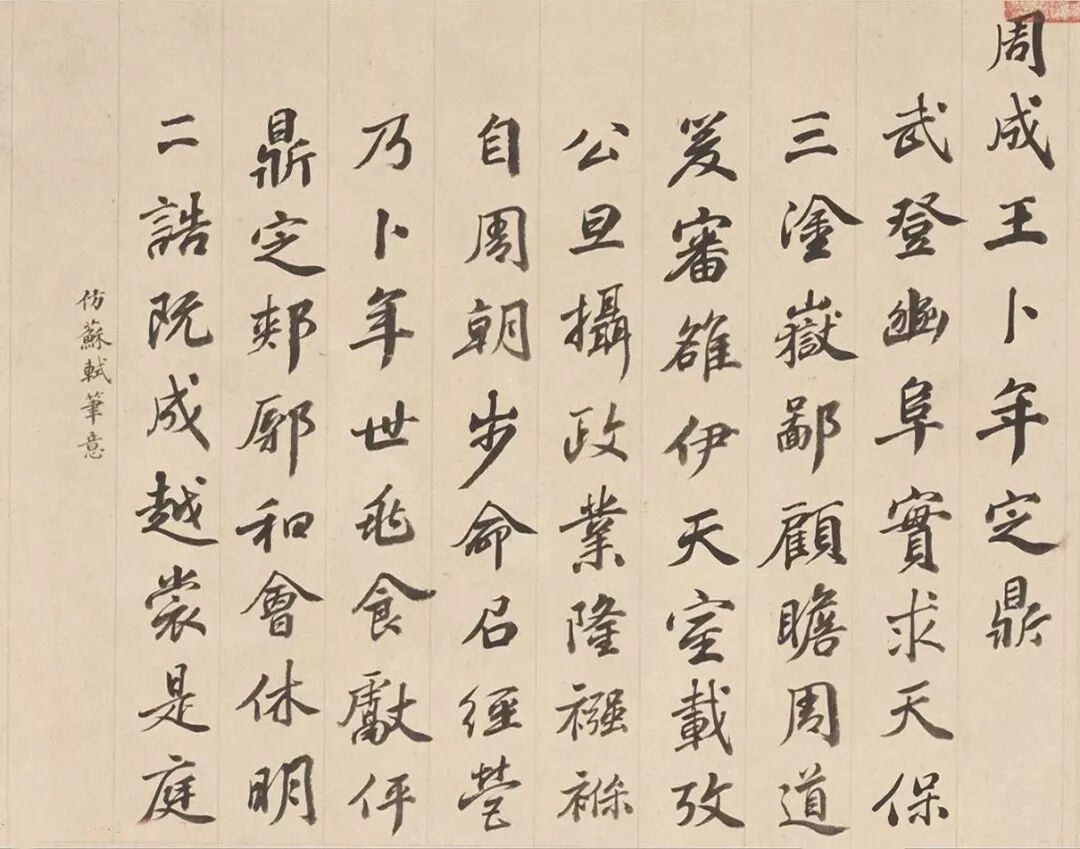 周成王卜年定鼎
武登豳阜實求天保
三塗嶽鄙顧瞻周道
爰審雒伊天室載攷
公旦攝政業隆襁褓
自周朝步命召經營
乃卜年世兆食獻伻
鼎定郟鄏和會休明
二誥既成越裳是庭
仿蘇軾筆意